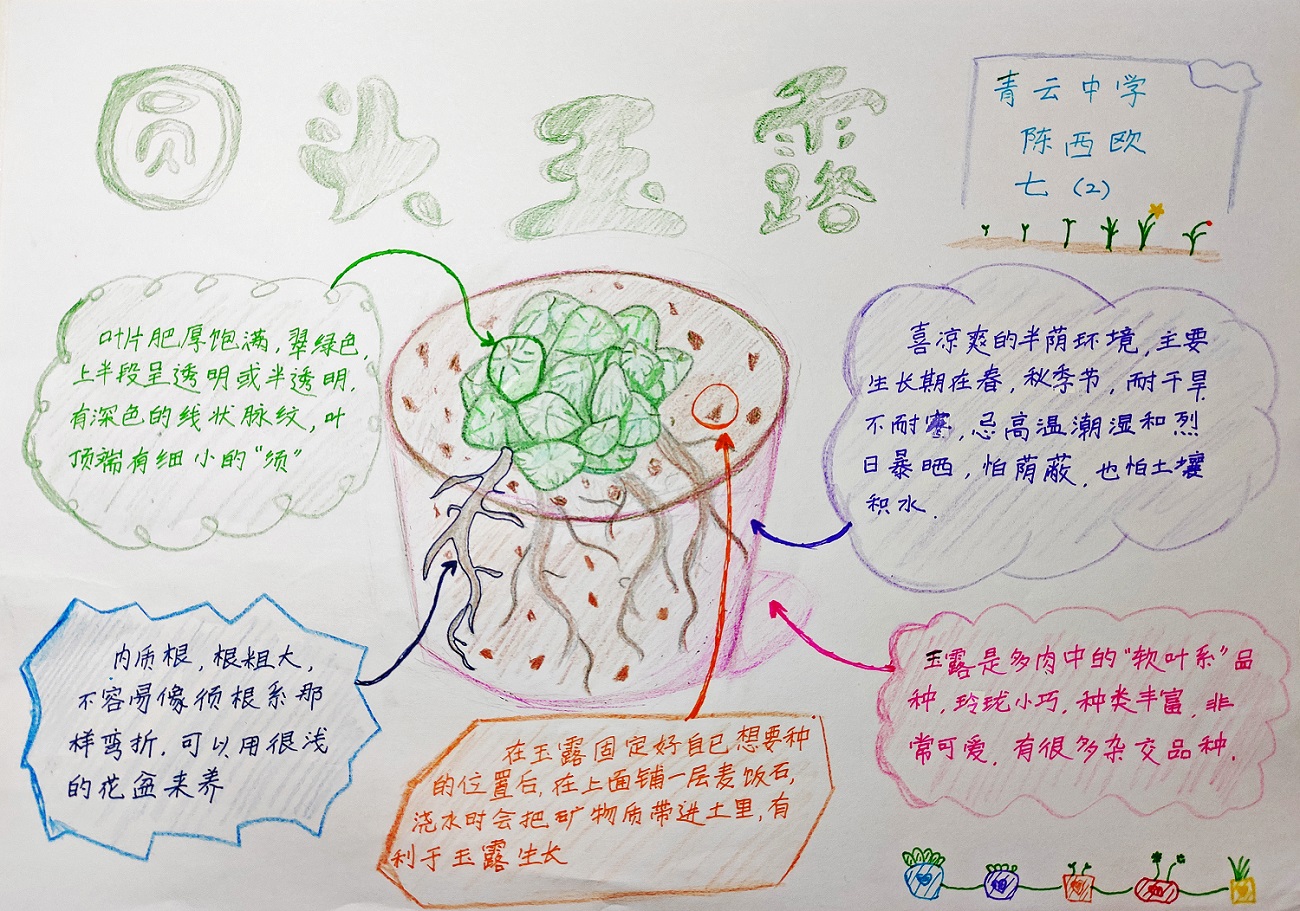 圆头玉露
青云中学
陈西欧
七（2）
叶片肥厚饱满，翠绿色，
上半段呈透明或半透明，
有深色的线状脉纹，叶
顶端有细小的“须”
喜凉爽的半荫环境，主要
生长期在春，秋季节，耐干旱
不耐寒，忌高温潮湿和烈
日暴晒，怕荫蔽，也怕土壤
积水．
肉质根，根粗大，
不容易像须根系那
样弯折．可以用很浅
的花盆来养
在玉露固定好自己想要种
的位置后，在上面铺一层麦饭石，
浇水时会把矿物质带进土里，有
利于玉露生长
玉露是多肉中的“软叶系”品
种，玲珑小巧，种类丰富，非
常可爱，有很多杂交品种．